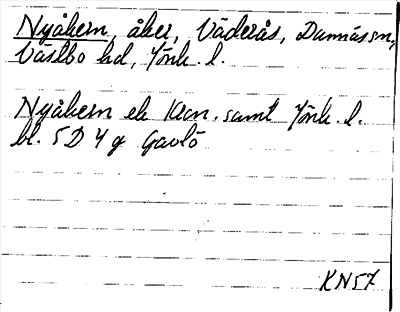 Nyåkern, åker, Väderås, Dannäs sn,
Västbo hd, Jönk. l.
Nyåkern ek Kron. samt Jönk. l.
bl. 5D 4g Gavlö
KN57